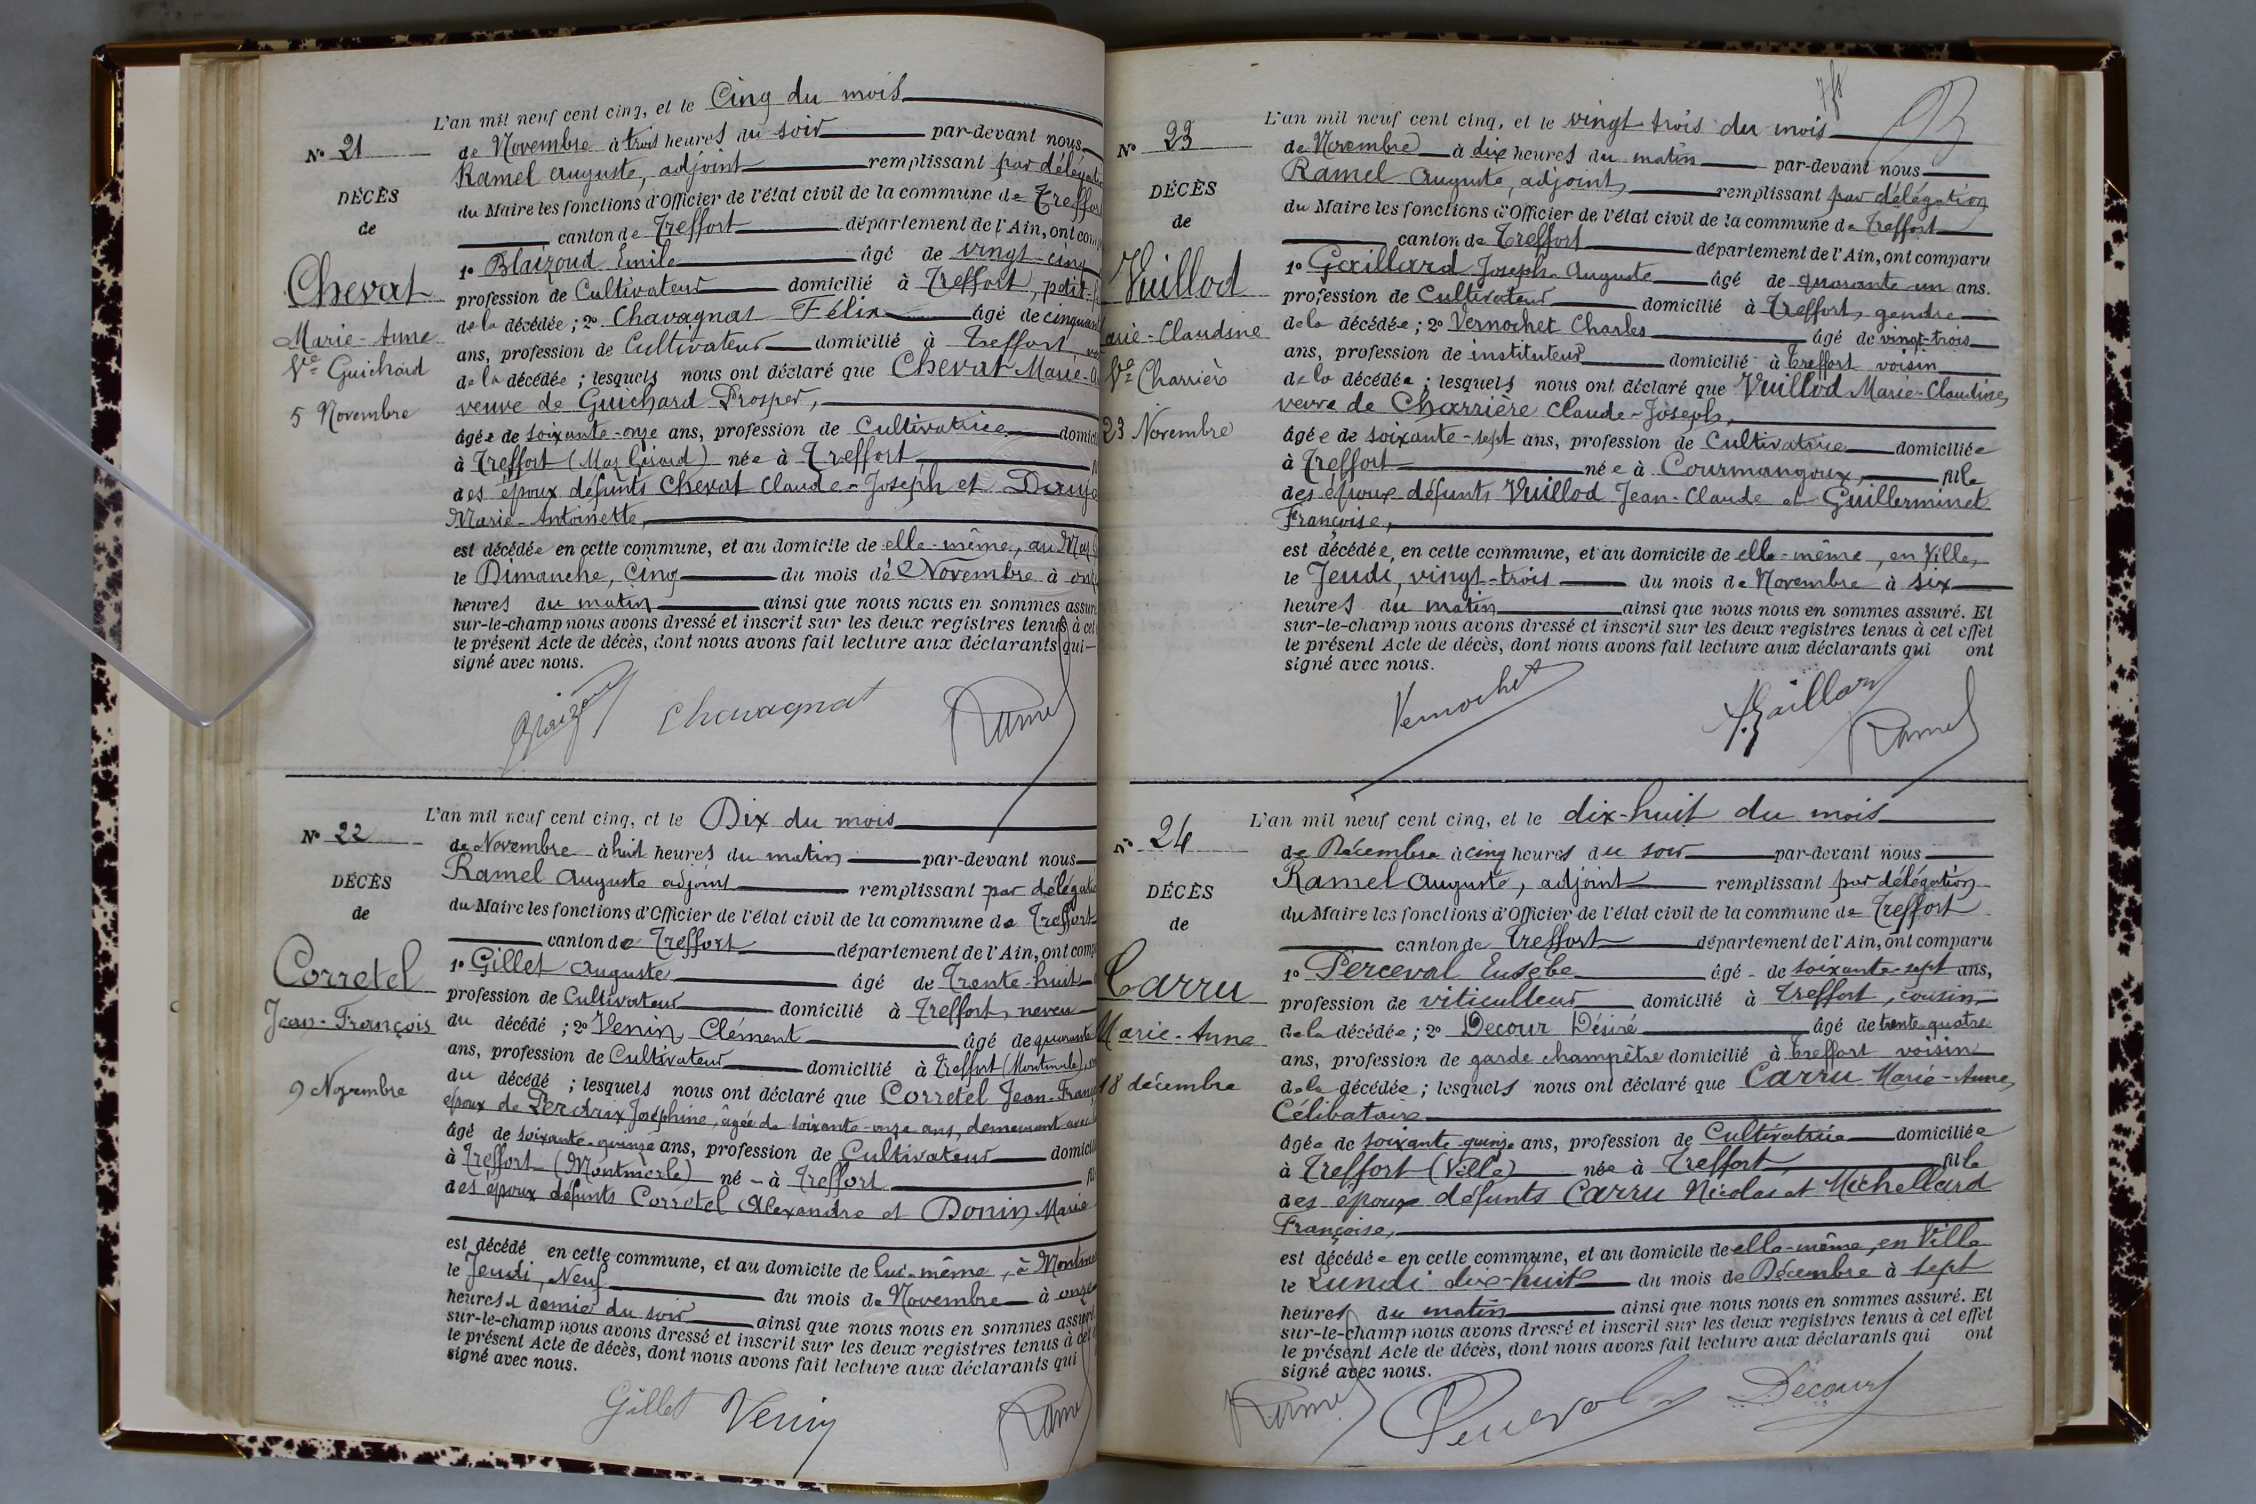 L'an mil neuf cent cinq, et le Cinq du mois
Nº 21
de Novembre à trois heures du soir par-devant nous
Ramel Auguste, adjoint remplissant par
DÉCÈS
du Maire les fonctions d'Officier de l'état civil de la commune de
de
canton de Treffort département de l'Ain, ont
1º Blaizoud Emile âgé de vingt-cinq
Chevat
profession de Cultivateur domicilié à Treffort,
Marie-Anne
de la décédée ; 2º Chavagnat Félix âgé de
Vve Guichard
ans, profession de Cultivateur domicilié à Treffort
de la décédée ; lesquels nous ont déclaré que Chevat Marie-
5 Novembre
veuve de Guichard Prosper,
âgée de soixante-onze ans, profession de Cultivatrice
à Treffort (Mas Girard) née à Treffort
des époux défunts Chevat Claude-Joseph et
Marie-Antoinette,
est décédée en cette commune, et au domicile de elle-même, au Mas
le Dimanche, Cinq du mois de Novembre à
heures du matin ainsi que nous nous en sommes
sur-le-champ nous avons dressé et inscrit sur les deux registres tenus à cet
le présent Acte de décès, dont nous avons fait lecture aux déclarants qui
signé avec nous.
Chavagnat Ramel
L'an mil neuf cent cinq, et le Dix du mois
Nº 22
de Novembre à huit heures du matin par-devant nous
Ramel Auguste adjoint remplissant par
DÉCÈS
du Maire les fonctions d'Officier de l'état civil de la commune de Treffort
de
canton de Treffort département de l'Ain, ont
1º Gillet Auguste âgé de Trente-huit
Corretel
profession de Cultivateur domicilié à Treffort, neveu
Jean-François
du décédé ; 2º Venin Clément âgé de quarante
ans, profession de Cultivateur domicilié à Treffort (Montmerle)
9 Novembre
du décédé ; lesquels nous ont déclaré que Corretel
époux de Perdrix Joséphine, âgée de soixante-onze ans, demeurant avec
âgé de soixante-quinze ans, profession de Cultivateur
à Treffort (Montmerle) né à Treffort
des époux défunts Corretel Alexandre et Donin Marie
est décédé en cette commune, et au domicile de lui-même, à
le Jeudi, Neuf du mois de Novembre à onze
heures et demie du soir ainsi que nous nous en sommes
sur-le-champ nous avons dressé et inscrit sur les deux registres tenus à cet
le présent Acte de décès, dont nous avons fait lecture aux déclarants qui
signé avec nous.
Gillet Venin Ramel
L'an mil neuf cent cinq, et le vingt trois du mois
Nº 23
de Novembre à dix heures du matin par-devant nous
Ramel Auguste, adjoint, remplissant par délégation
DÉCÈS
du Maire les fonctions d'Officier de l'état civil de la commune de Treffort
de
canton de Treffort département de l'Ain, ont comparu
1º Gaillard Joseph-Auguste âgé de quarante un ans.
Vuillod
profession de Cultivateur domicilié à Treffort, gendre
arie-Claudine
de la décédée ; 2º Vernochet Charles âgé de vingt-trois
ans, profession de instituteur domicilié à Treffort voisin
Vve Charrière
de la décédée ; lesquels nous ont déclaré que Vuillod Marie-Claudine,
veuve de Charrière Claude-Joseph,
23 Novembre
âgée de soixante-sept ans, profession de Cultivatrice domiciliée
à Treffort née à Courmangoux, fille
des époux défunts Vuillod Jean-Claude et Guillerminet
Françoise,
est décédée, en cette commune, et au domicile de elle-même, en Ville,
le Jeudi, vingt-trois du mois de Novembre à six
heures du matin ainsi que nous nous en sommes assuré. Et
sur-le-champ nous avons dressé et inscrit sur les deux registres tenus à cet effet
le présent Acte de décès, dont nous avons fait lecture aux déclarants qui ont
signé avec nous.
Vernochet Gaillard Ramel
L'an mil neuf cent cinq, et le dix-huit du mois
Nº 24
de Décembre à cinq heures du soir par-devant nous
Ramel Auguste, adjoint remplissant par délégation
DÉCÈS
du Maire les fonctions d'Officier de l'état civil de la commune de Treffort
de
canton de Treffort département de l'Ain, ont comparu
1º Perceval Eusèbe âgé de soixante-sept ans,
Carru
profession de viticulteur domicilié à Treffort, cousin
Marie-Anne
de la décédée ; 2º Decour Désiré âgé de trente-quatre
ans, profession de garde champêtre domicilié à Treffort voisin
18 décembre
de la décédée ; lesquels nous ont déclaré que Carru Marie-Anne,
Célibataire
âgée de soixante-quinze ans, profession de Cultivatrice domiciliée
à Treffort (Ville) née à Treffort, fille
des époux défunts Carru Nicolas et Michellard
Françoise,
est décédée en cette commune, et au domicile de elle-même, en Ville
le Lundi dix-huit du mois de Décembre à sept
heures du matin ainsi que nous nous en sommes assuré. Et
sur-le-champ nous avons dressé et inscrit sur les deux registres tenus à cet effet
le présent Acte de décès, dont nous avons fait lecture aux déclarants qui ont
signé avec nous.
Ramel Perceval Decour